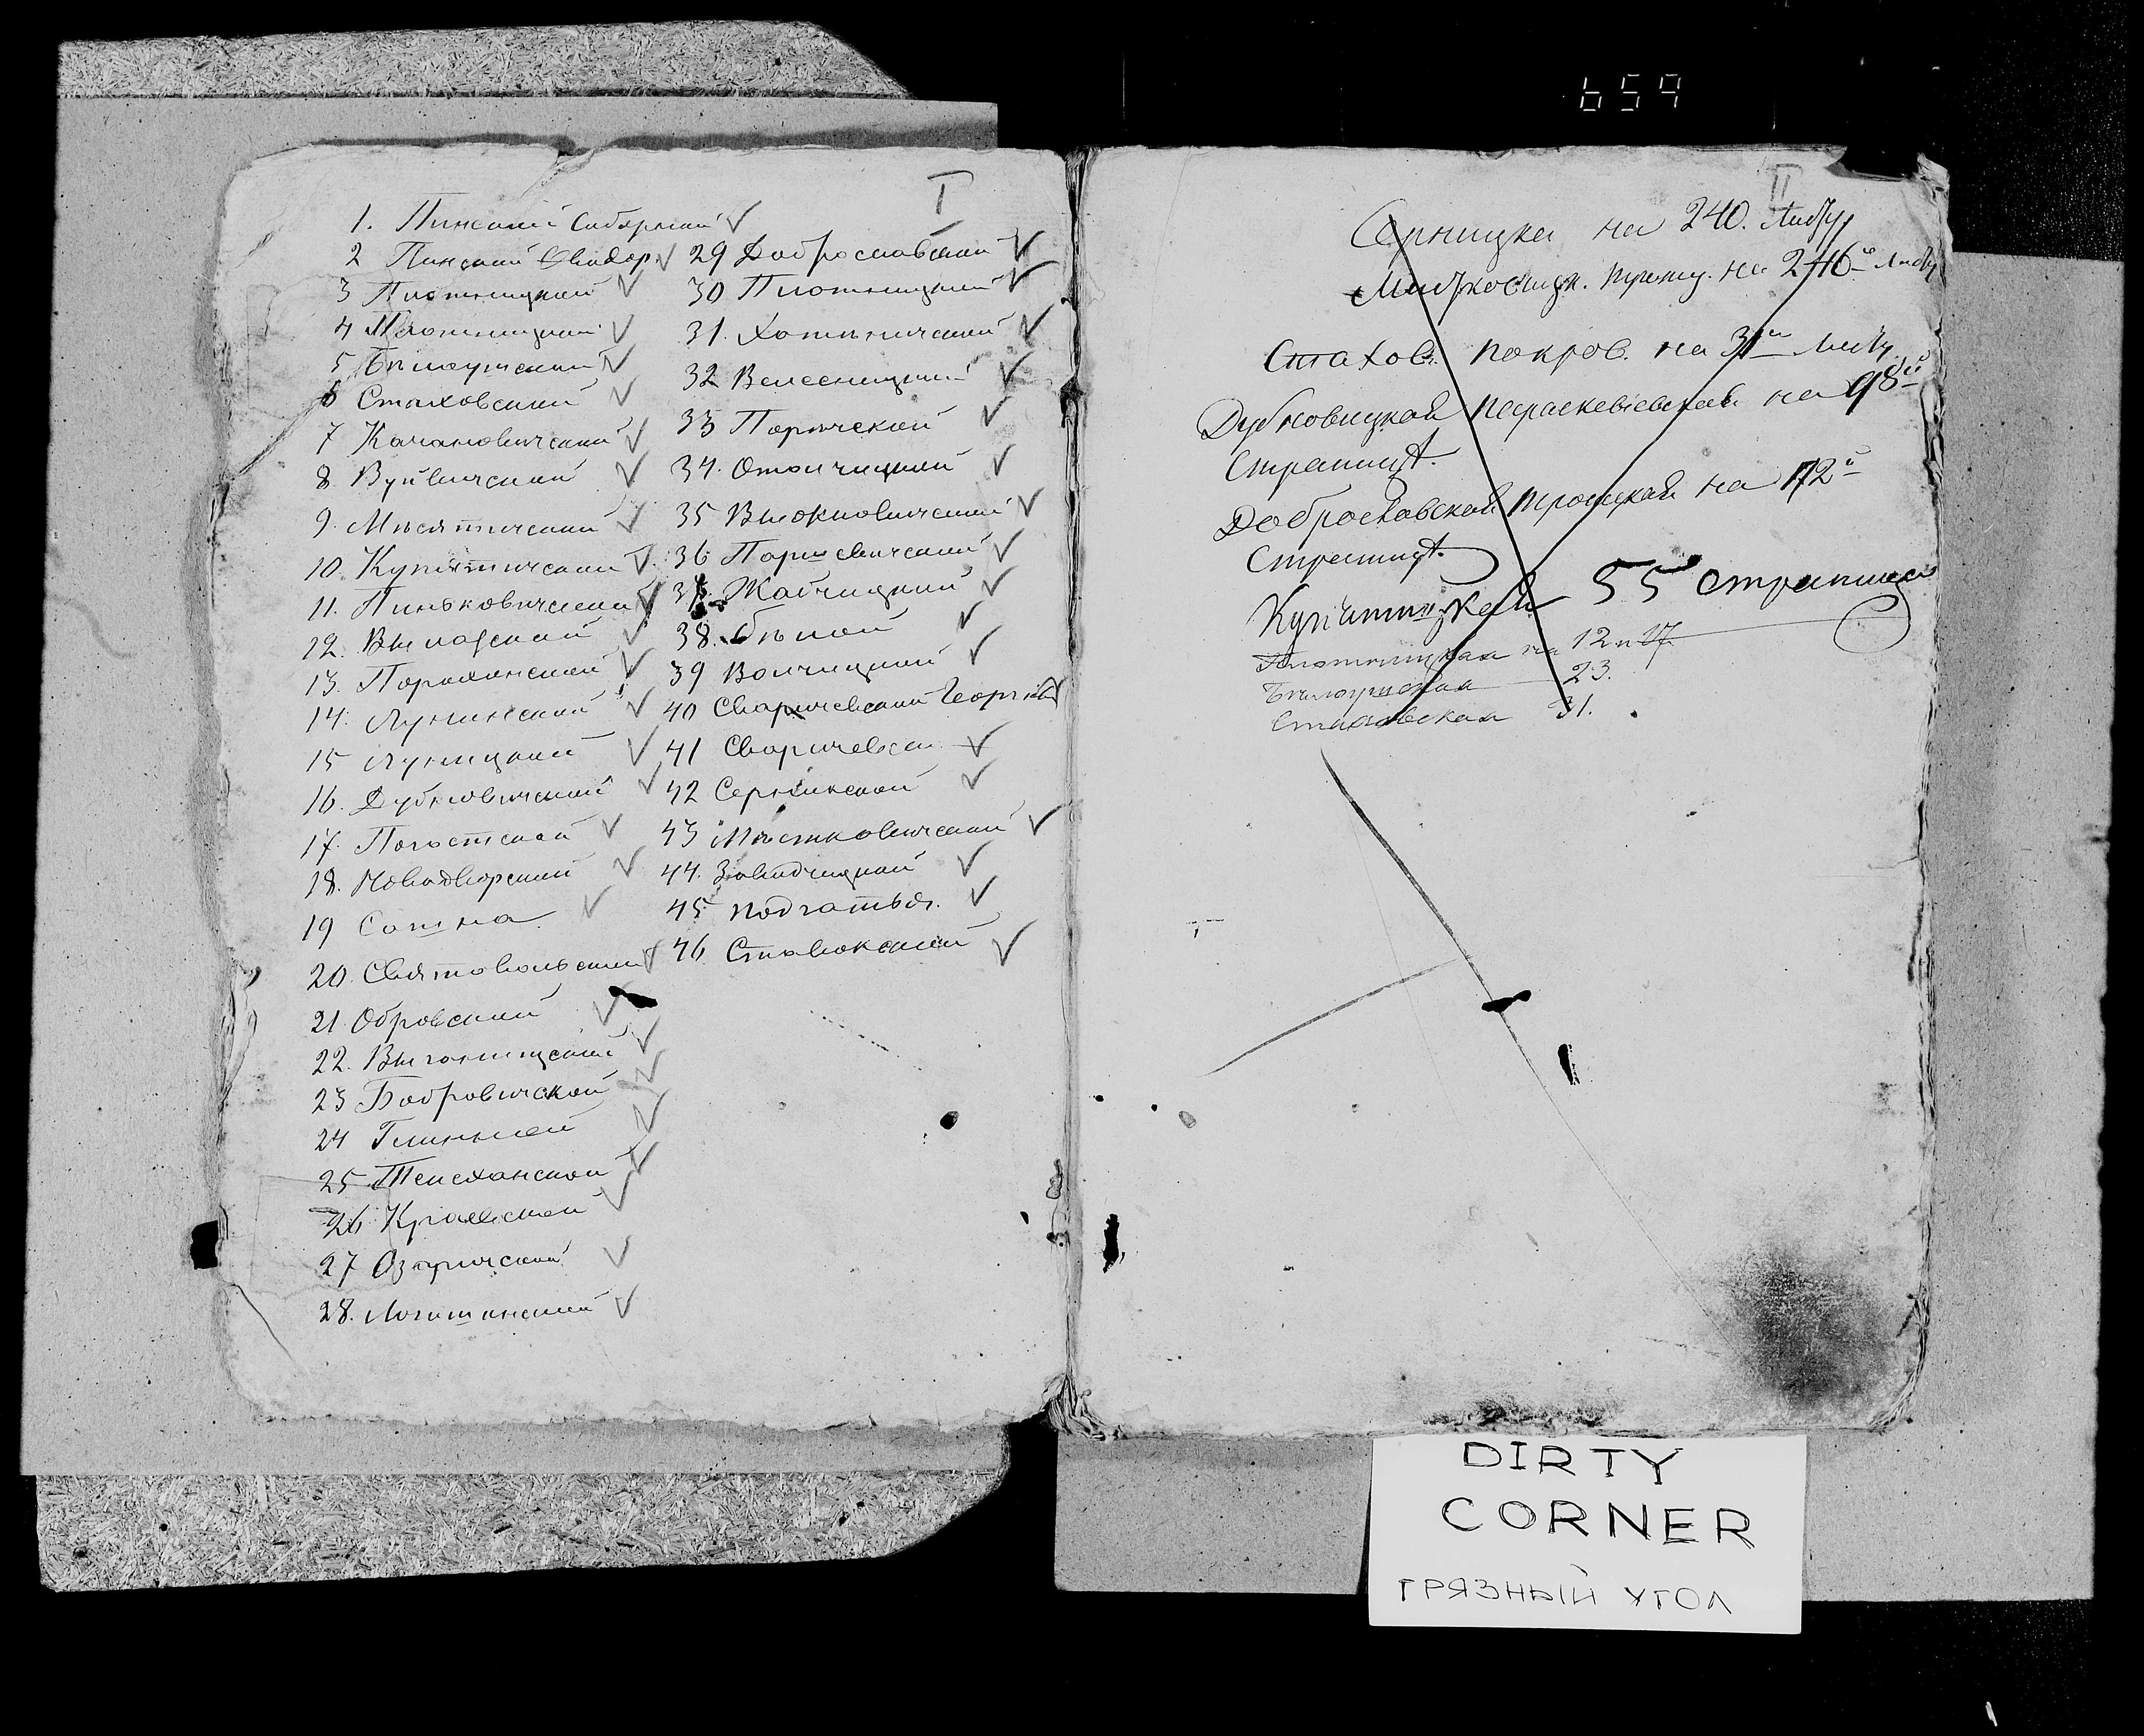 659
I
1. Пинской Соборной
2 Пинской Феодор.
3 Плотницкой
4 Плотницкой
5 Бѣлоушской
6 Стаховской
7 Качановичской
8. Вуйвичской
9. Мѣсятичской
10. Купятичской
11. Пиньковичской
12. Вылазской
13. Порохонской
14. Лунинской
15 Луницкой
16. Дубновичской
17. Погостской
18. Новодворской
19 Сошна
20. Святовольской
21. Обровской
22. Выгонищской
23 Бобровичской
24 Глинной
25 Телеханской
26. Краевской
27 Озаричской
28. Логишинской
29 Доброславской
30 Плотницкой
31. Хотыничской
32 Велесницкой
33 Поричской
34. Отолчицкой
35 Высоковичской
36 Паршевичской
37. Жабчицкой
38. Бѣлой
39 Волчицкой
40 Сваричевской Георгiев
41 Сваричевск.
42 Серникской
43 Мѣстковичской
44. Завидчицкой
45 Подгатья.
46 Ставокской
II
Серницка на 240. Листу
на 246 Листу
Стахов. покров. на 31 Листу.
Дубновицкой Параскевiевской на 98й
Страницѣ.
Доброславской Троицкой на 172й
Страницѣ.
Купятицкой 55 страница
Плотницкая на 12 и 17.
Бѣлоушская 23.
Стаховская 31.
DIRTY
CORNER
ГРЯЗНЫЙ УГОЛ